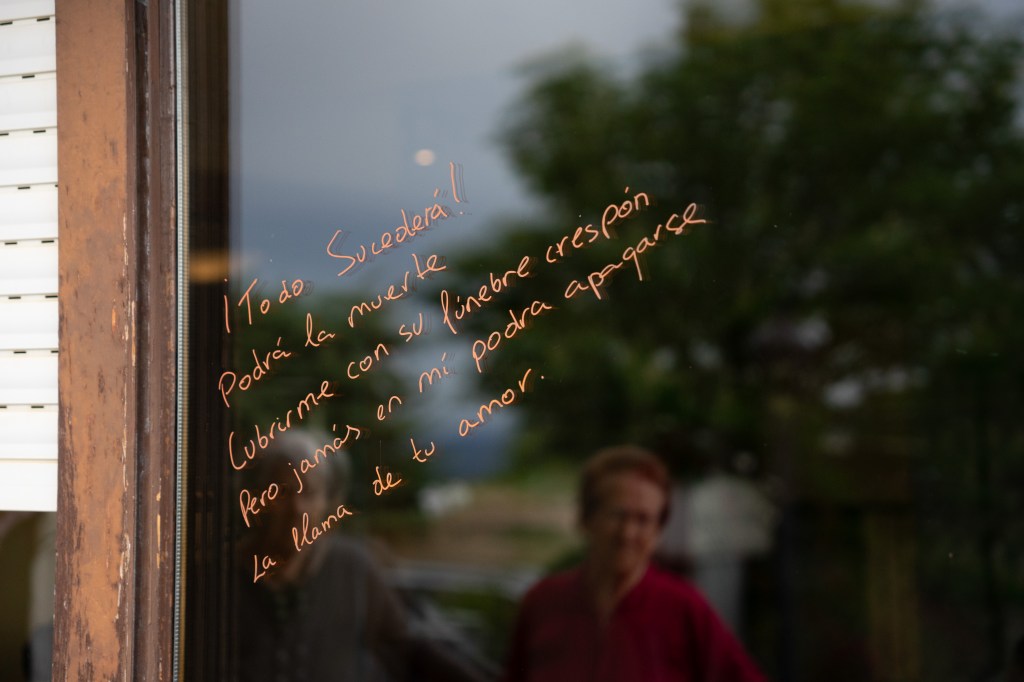 ¡Todo Sucederá!!
Podrá la muerte
Cubrirme con su fúnebre crespón
Pero jamás en mí podra apagarse
La llama de tu amor.